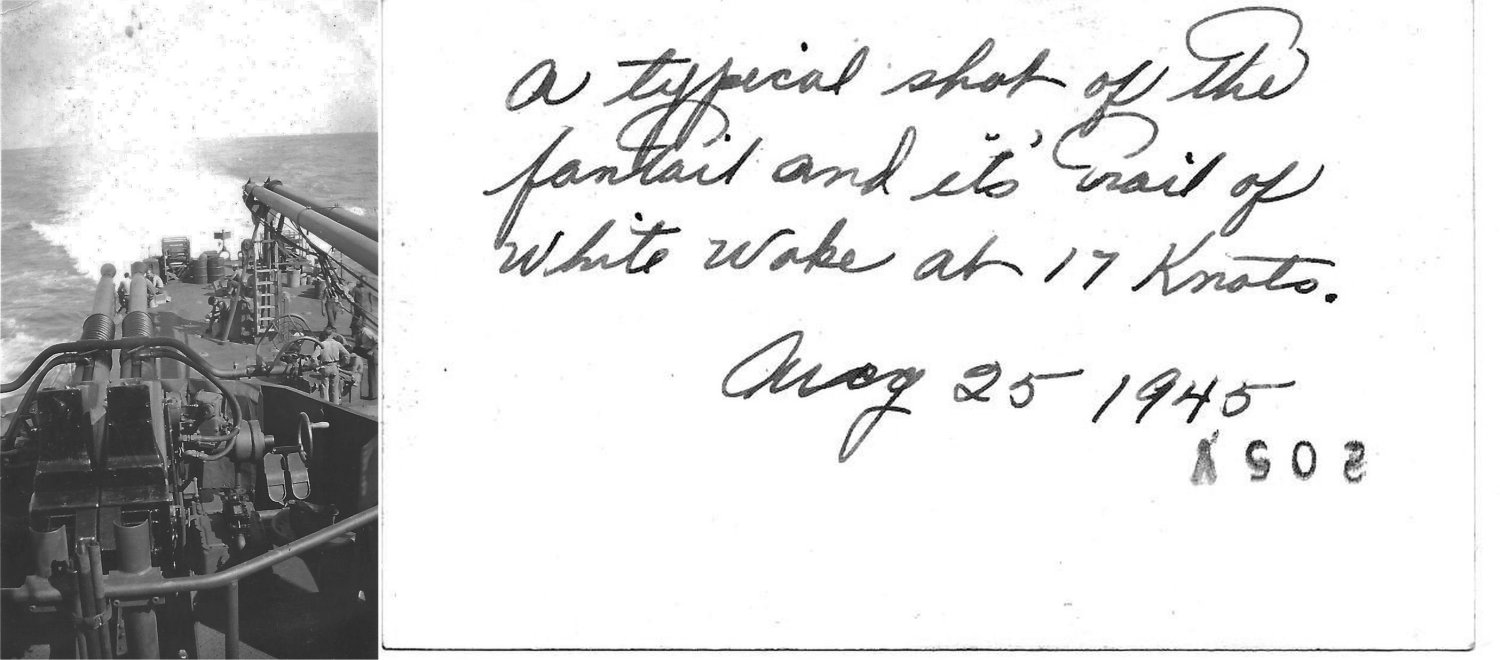 A typical shot of the
fantail and its' Trail of
White Wake at 17 Knots.
Aug 25 1945